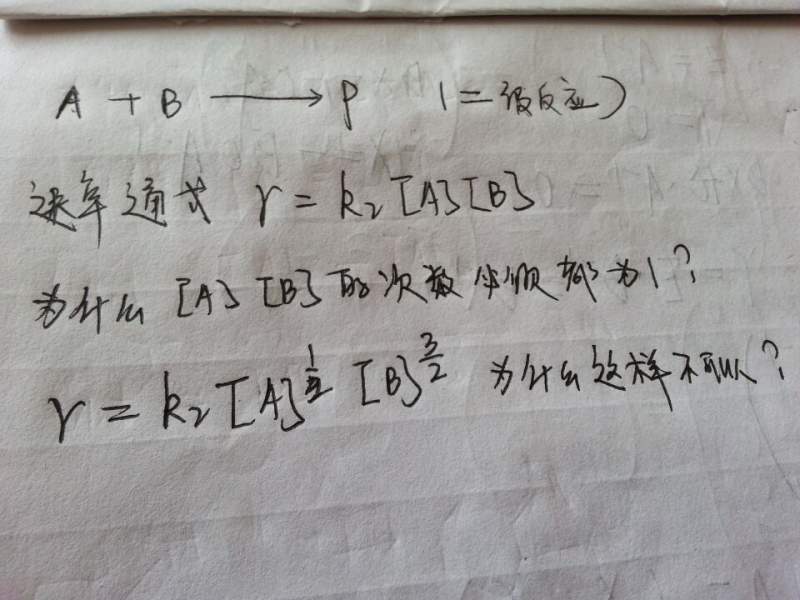 A + B ⟶ P (二级反应)
速率通式 r = k₂[A][B]
为什么 [A] [B] 的次数必须都为1?
r = k₂[A]^{1/2} [B]^{3/2} 为什么这样不可以?